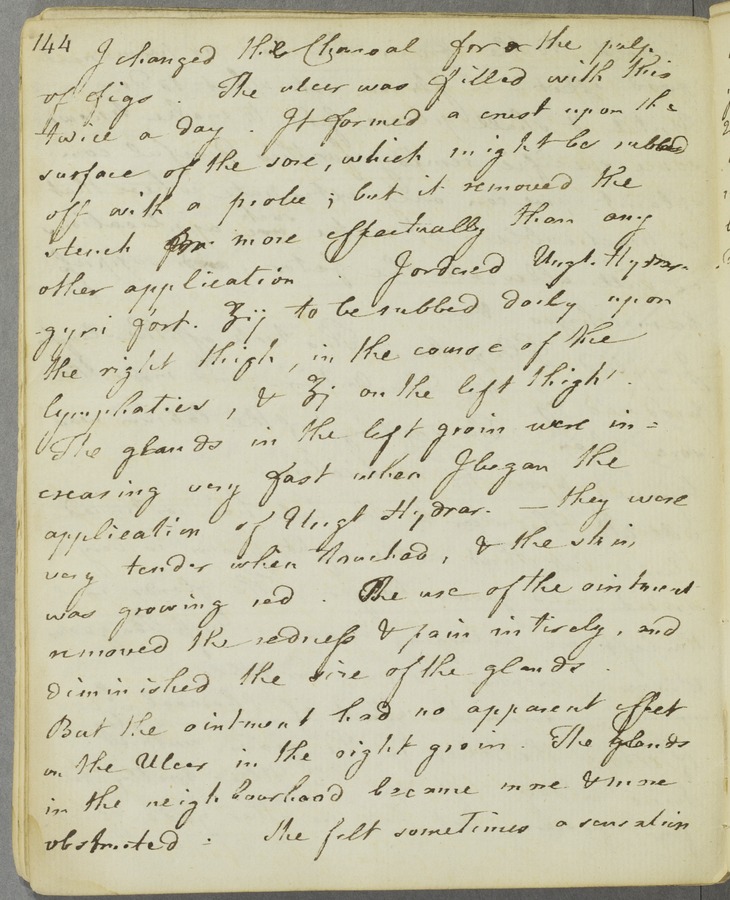 144
I changed the Charcoal for the pulp
of figs. The ulcer was filled with this
twice a day. It formed a crust upon the
surface of the sore, which might be rubbed
off with a probe; but it removed the
stench far more effectually than any
other application. I ordered Ungt. Hydrar-
gyri fort. ʒij to be rubbed daily upon
the right thigh, in the course of the
lymphatics, & ʒj on the left thigh.
The glands in the left groin were in=
creasing very fast when I began the
application of Ungt Hydrar. — they were
very tender when touched, & the skin
was growing red. The use of the ointment
removed the redness & pain intirely, and
diminished the size of the glands.
But the ointment had no apparent effect
on the Ulcer in the right groin. The glands
in the neighbourhood became more & more
obstructed. She felt sometimes a sensation